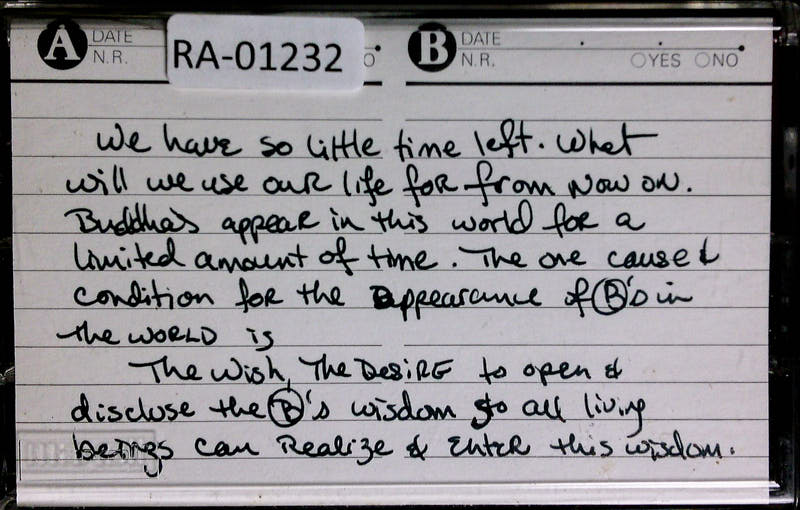 A DATE N.R. RA-01232 O B DATE N.R. YES NO
We have so little time left. What
will we use our life for from now on.
Buddhas appear in this world for a
limited amount of time. The one cause &
condition for the appearance of Ⓑ's in
the world is
The Wish, The Desire to open &
disclose the Ⓑ's wisdom so all living
beings can realize & enter this wisdom.